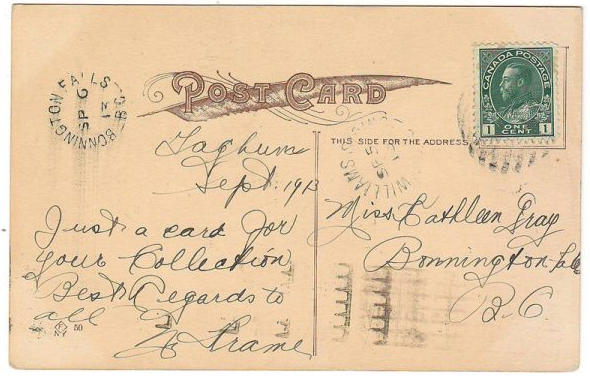 BONNINGTON FALLS B.C.
SP 6
13
POST CARD
CANADA POSTAGE
1 ONE CENT 1
THIS SIDE FOR THE ADDRESS
WILLIAMS
SP 5
Taghum
Sept. 1913
Just a card for
your Collection
Best Regards to
all
Miss Cathleen Gray
Bonnington
B.C.
NY
50